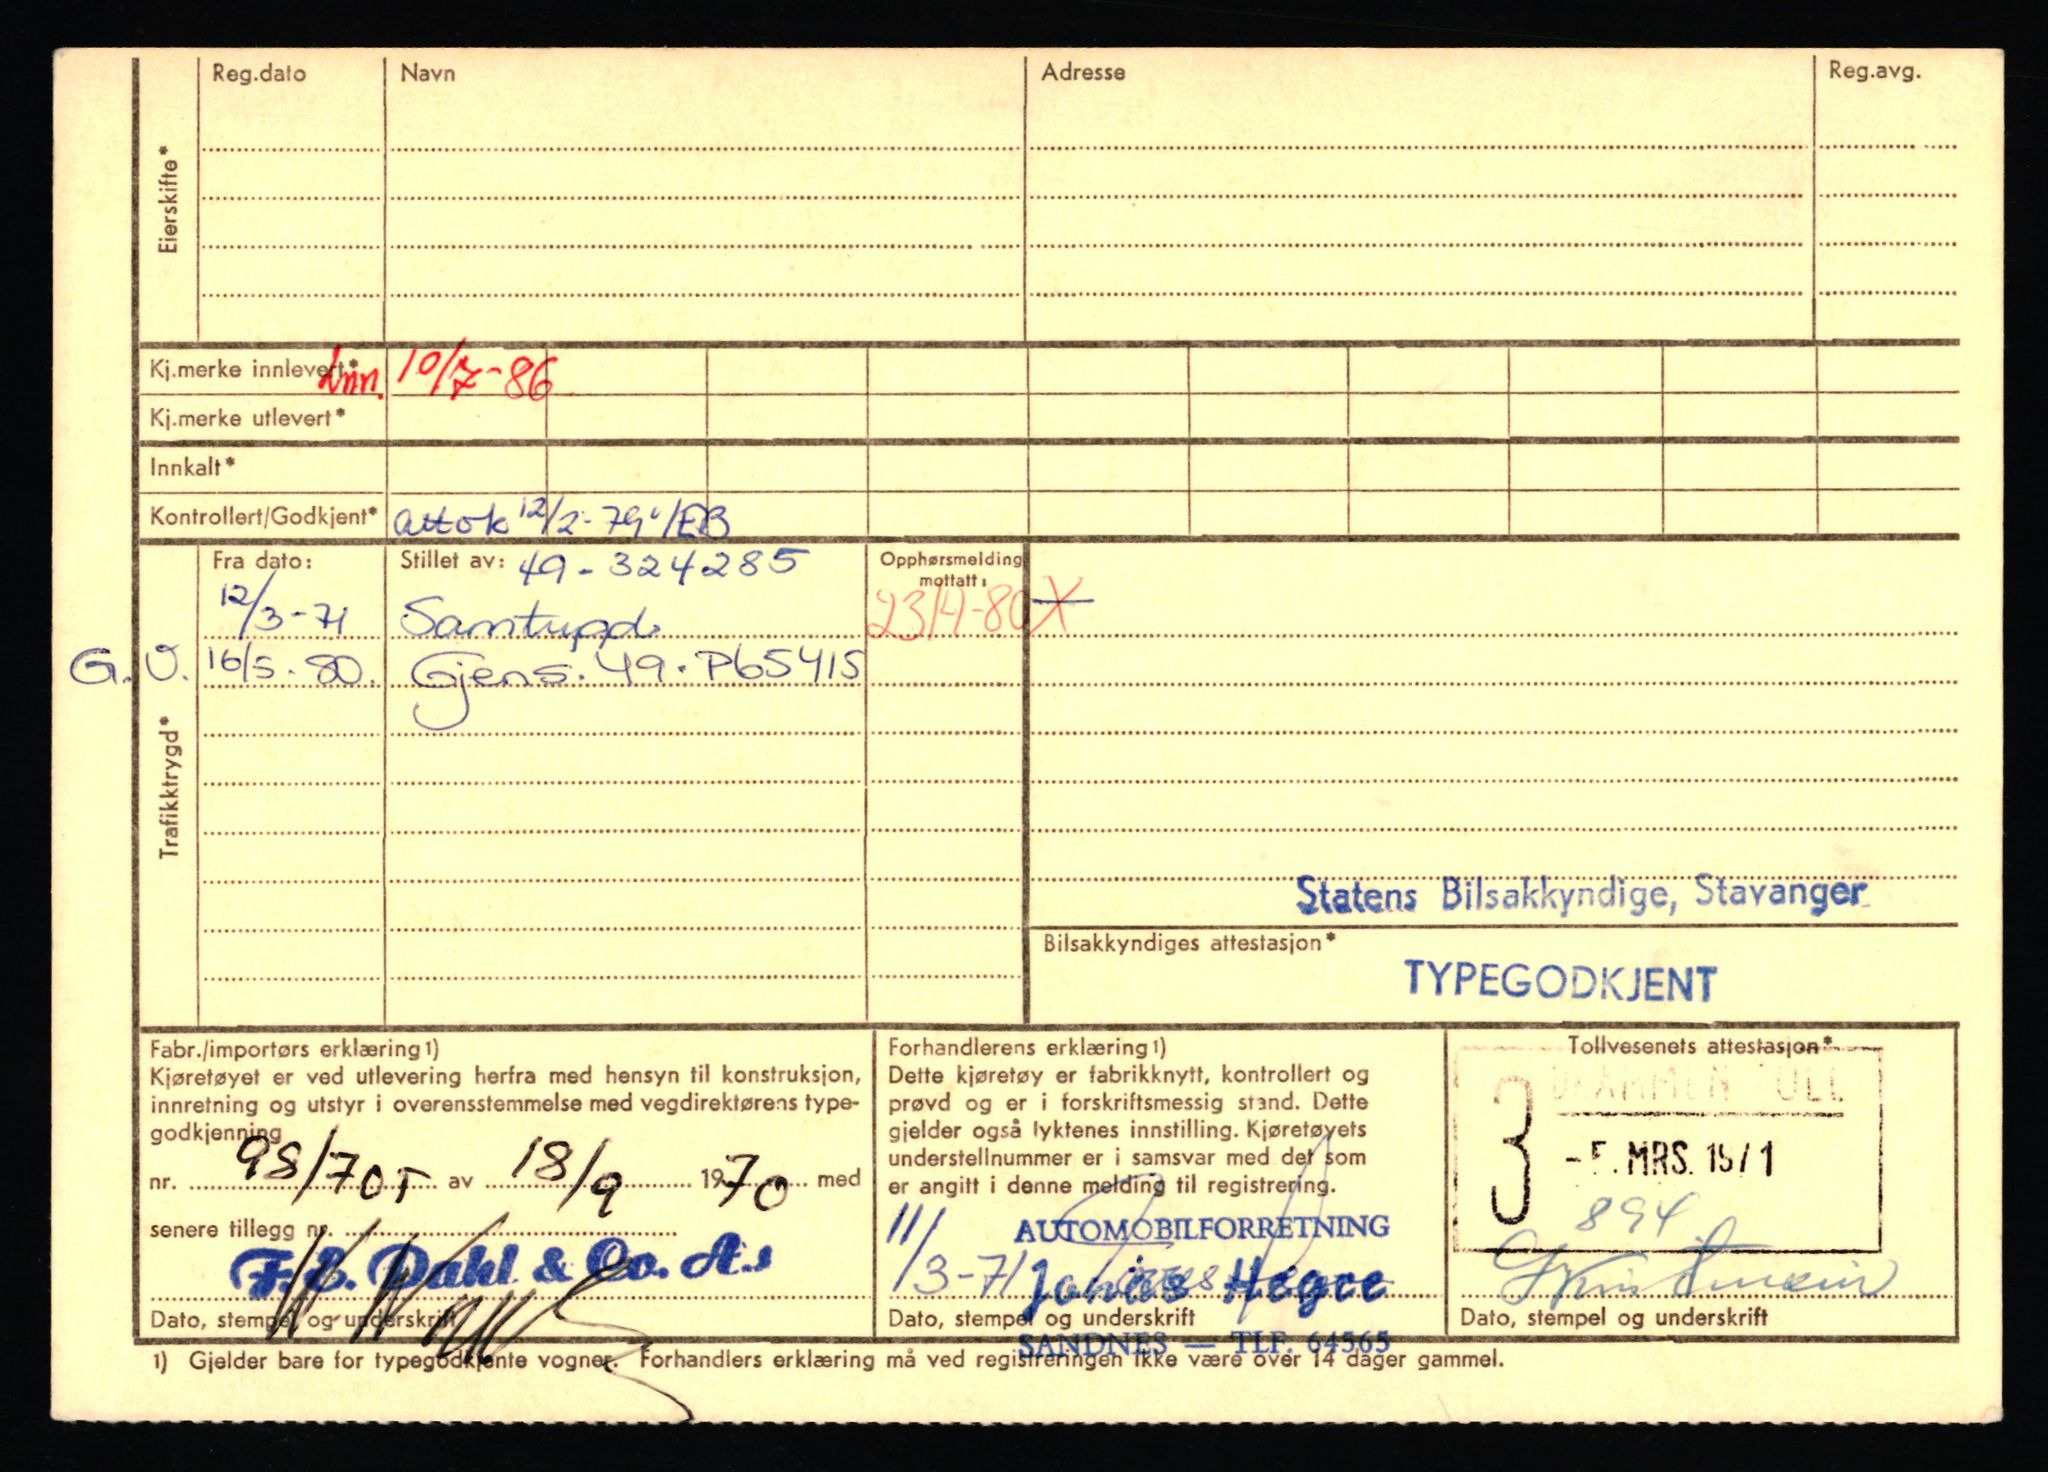 Reg.dato Navn Adresse Reg.avg.
Eierskifte*
Kj.merke innlevert* Inn. 10/7-86
Kj.merke utlevert*
Innkalt*
Kontrollert/Godkjent* att ok 12/2-79 /EB
Fra dato: Stillet av: 49-324285 Opphørsmelding mottatt:
12/3-71 Samtrygd. 23/4-80 X
G.V. 16/5-80. Gjens. 49. P65415
Trafikktrygd*
Statens Bilsakkyndige, Stavanger
Bilsakkyndiges attestasjon*
TYPEGODKJENT
Fabr./importørs erklæring 1)
Kjøretøyet er ved utlevering herfra med hensyn til konstruksjon,
innretning og utstyr i overensstemmelse med vegdirektørens type-
godkjenning
nr. 98/70T av 18/9 1970 med
senere tillegg nr.
F.B. Dahl & Co. A.s
Dato, stempel og underskrift
Forhandlerens erklæring 1)
Dette kjøretøy er fabrikknytt, kontrollert og
prøvd og er i forskriftsmessig stand. Dette
gjelder også lyktenes innstilling. Kjøretøyets
understellnummer er i samsvar med det som
er angitt i denne melding til registrering.
11/3-71
AUTOMOBILFORRETNING
Jonas Hegre
Dato, stempel og underskrift
SANDNES — TLF. 64565
Tollvesenets attestasjon*
DRAMMEN TOLL
3
-5. MRS. 1971
894
Dato, stempel og underskrift
1) Gjelder bare for typegodkjente vogner. Forhandlers erklæring må ved registreringen ikke være over 14 dager gammel.